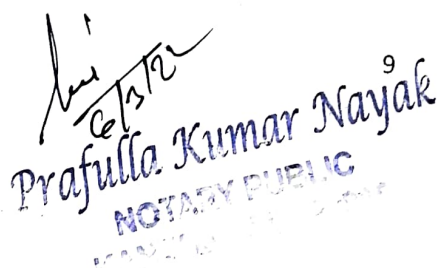 6/3/22
9
Prafulla Kumar Nayak
NOTARY PUBLIC